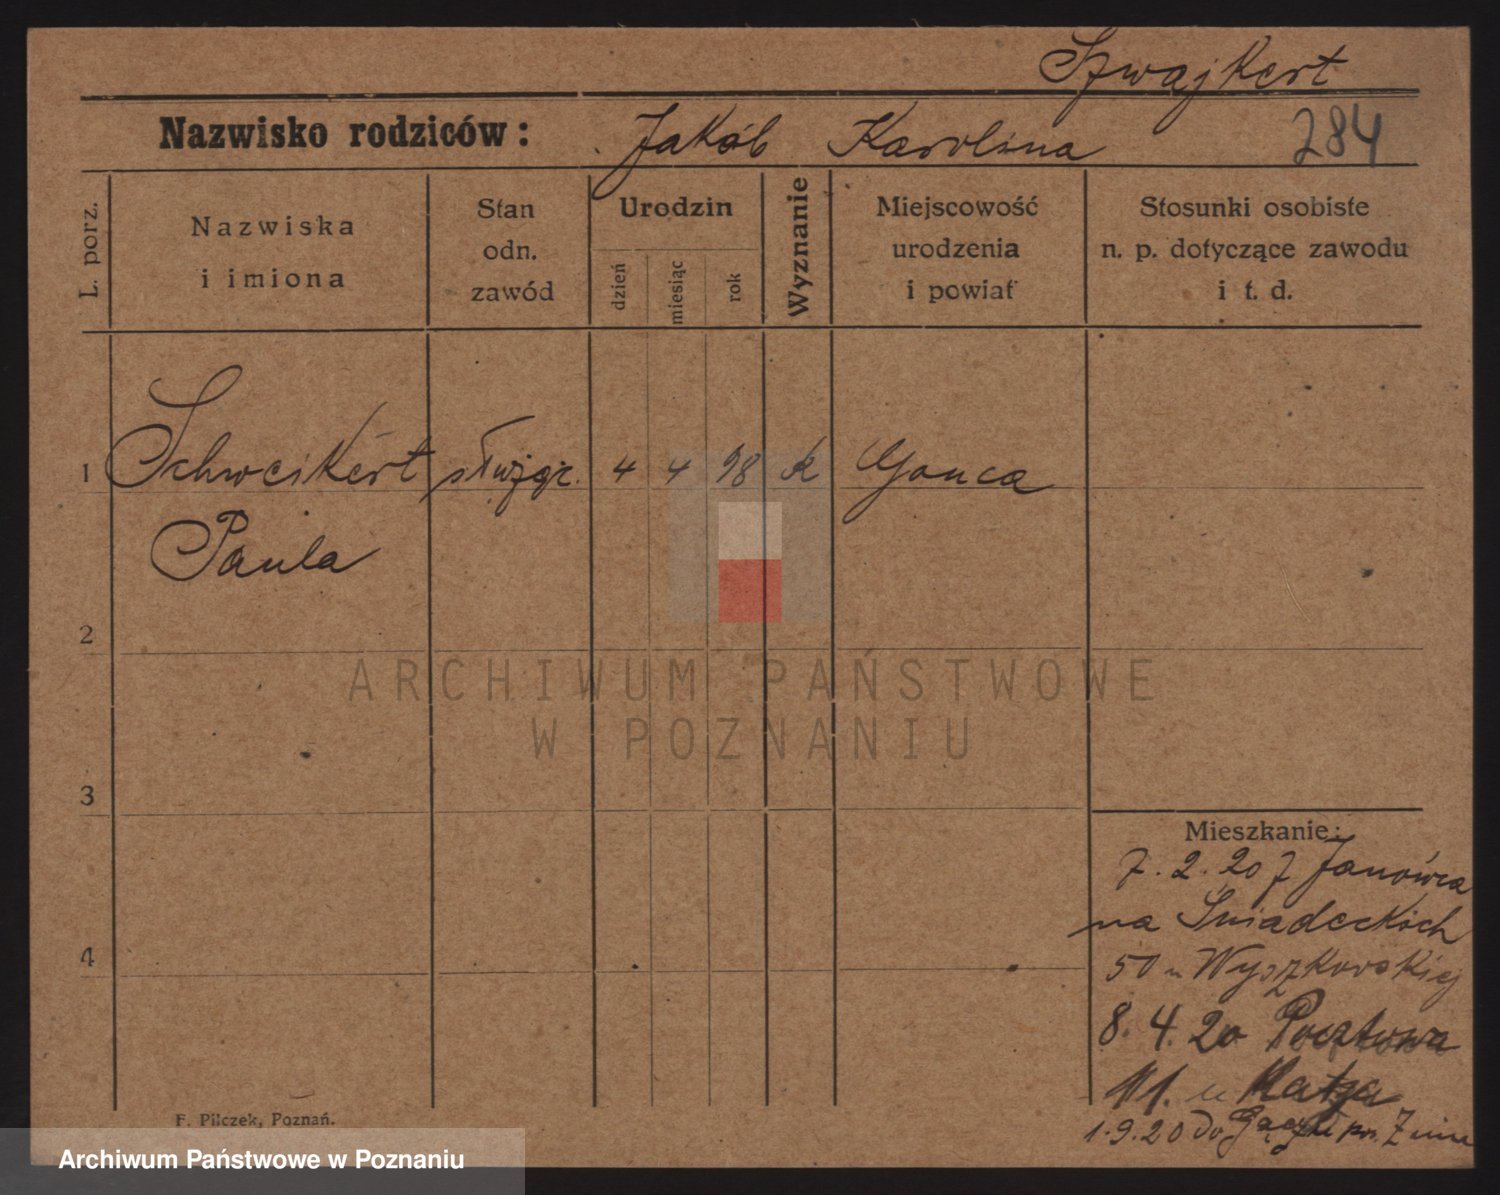 Szwajkert
Nazwisko rodziców: Jakób Karolina 284
L. porz.
Nazwiska
i imiona
Stan
odn.
zawód
Urodzin
dzień
miesiąc
rok
Wyznanie
Miejscowość
urodzenia
i powiat
Stosunki osobiste
n. p. dotyczące zawodu
i t. d.
1 Schweikert służąc. 4 4 98 k Gonca
Paula
2
ARCHIWUM PAŃSTWOWE
W POZNANIU
3
Mieszkanie:
7. 2. 20 z Janówca
na Śniadeckich
4
50 u Wyszkowskiej
8. 4. 20 Pocztowa
11. u Matza
1.9.20 do pow. Żnin
F. Pilczek, Poznań.
Archiwum Państwowe w Poznaniu